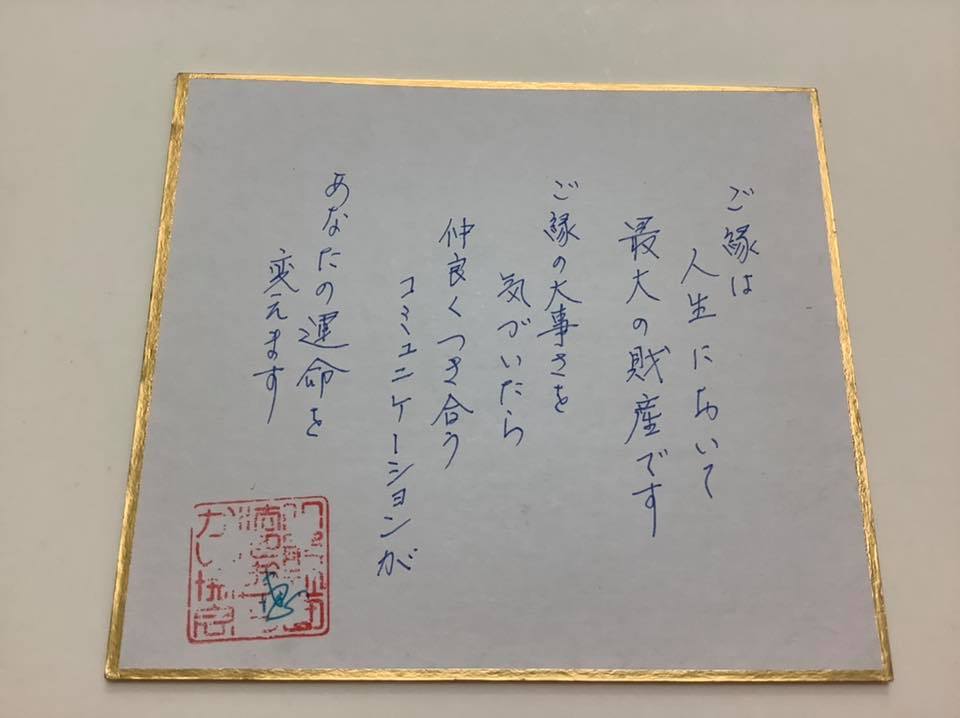 ご縁は
人生において
最大の財産です
ご縁の大事さを
気づいたら
仲良くつき合う
コミュニケーションが
あなたの運命を
変えます